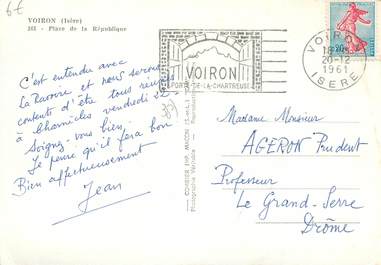 6€
VOIRON (Isère)
268 - Place de la République
VOIRON
PORTE DE LA CHARTREUSE
VOIRON
20-12
1961
ISERE
C'est entendu avec
la et nous serons
contents d'être tous réunis
à vendredi 22 -
Soignez-vous bien.
Je pense qu'il fera bon
Bien affectueusement
Jean
Madame Monsieur
AGERON Prudent
Professeur
Le Grand-Serre
Drôme
COMBIER IMP. MACON
Photographie Véritable